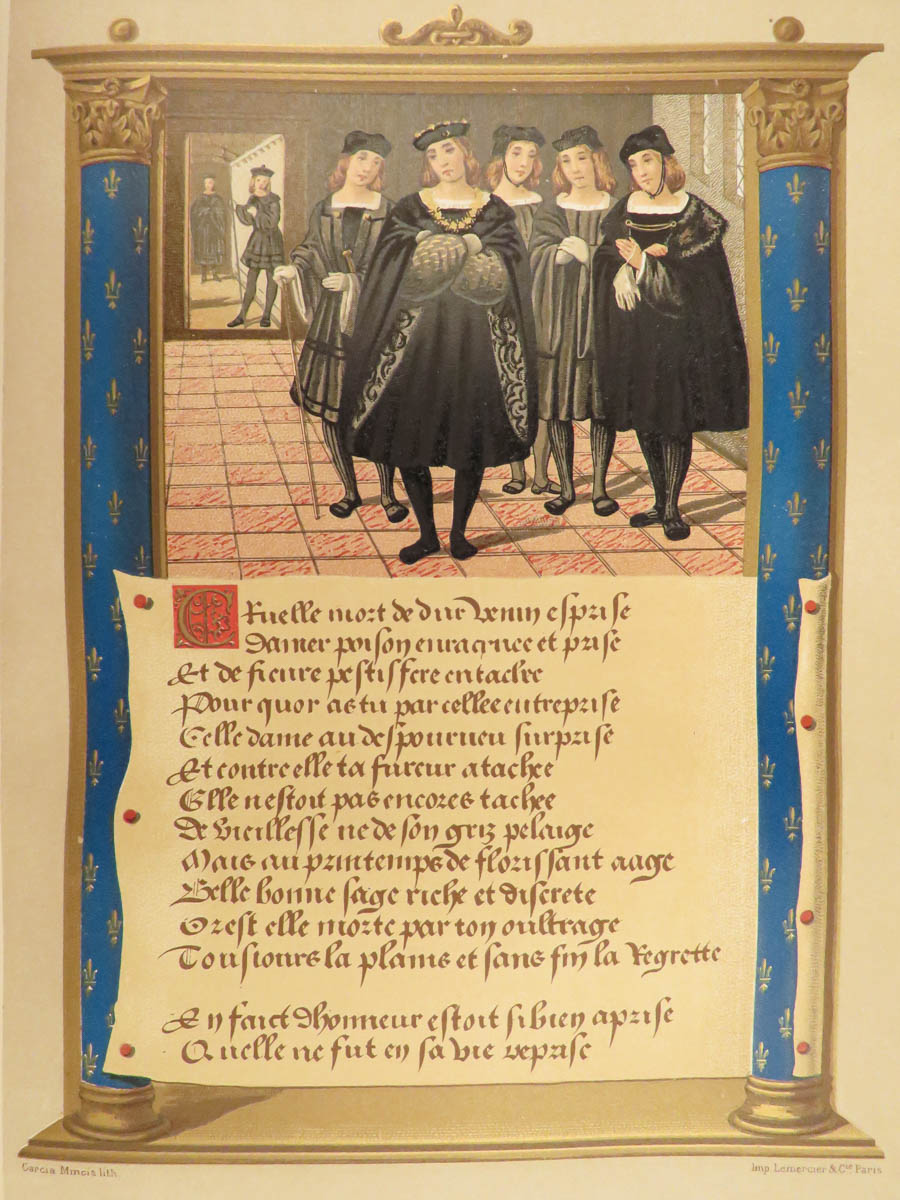 Cruelle mort de dur venin esprise
Damer poison enracinee et prise
Et de fieure pestisfere entachee
Pour quoy as tu par cellee entreprise
Celle dame au despourueu surprise
Et contre elle ta fureur atachee
Elle nestoit pas encores tachee
De vieillesse ne de son griz pelaige
Mais au printemps de florissant aage
Belle bonne sage riche et discrete
Or est elle morte par ton oultrage
Tousiours la plains et sans fin la Regrette
En faict dhonneur estoit si bien aprise
Quelle ne fut en sa vie reprise
Garcia Mincis lith.
Imp. Lemercier & Cie Paris